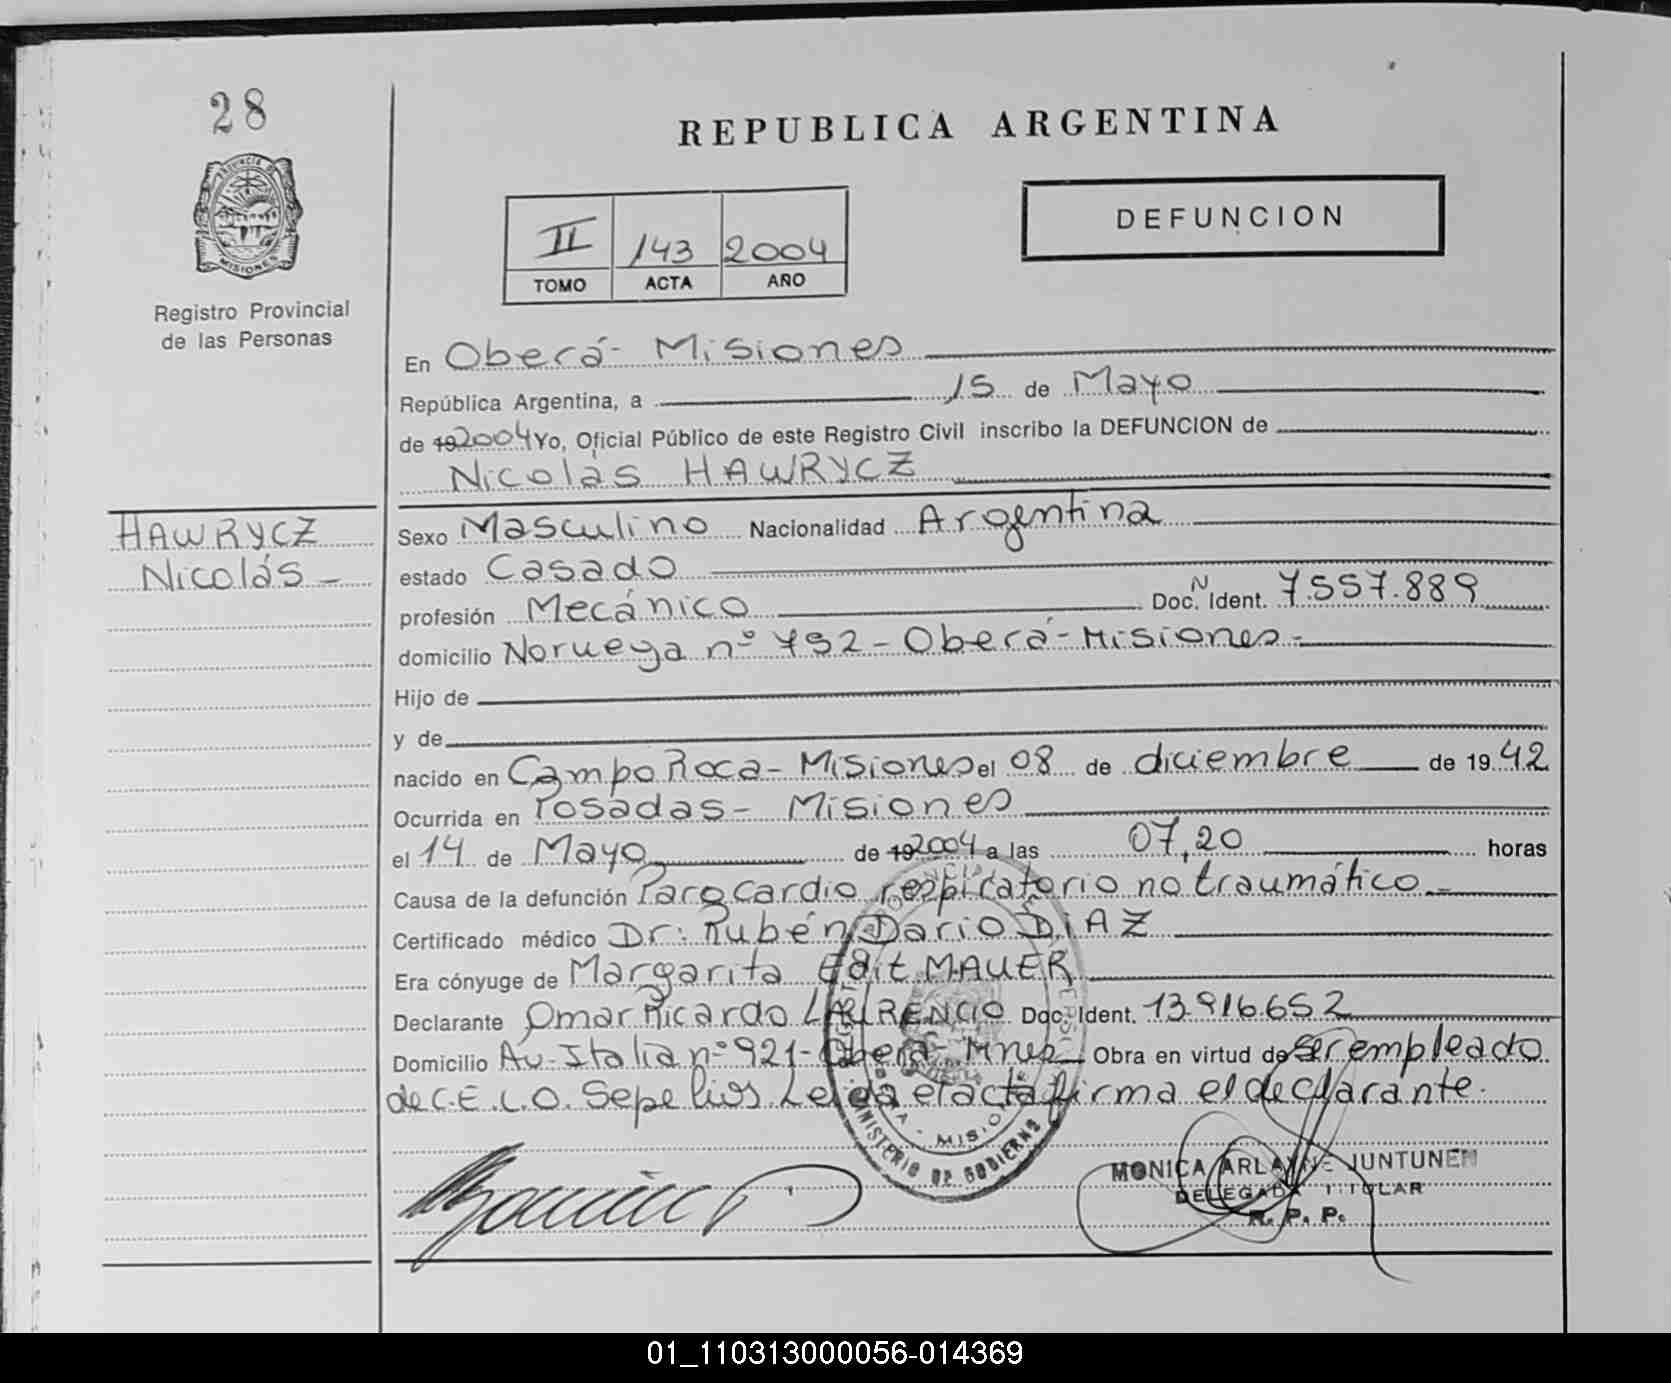 28
PROVINCIA DE
MISIONES
Registro Provincial
de las Personas
REPUBLICA ARGENTINA
II 143 2004
TOMO ACTA AÑO
DEFUNCION
En Oberá - Misiones
República Argentina, a 15 de Mayo
de 19 2004 Yo, Oficial Público de este Registro Civil inscribo la DEFUNCION de
Nicolás HAWRYCZ
HAWRYCZ
Nicolás -
Sexo Masculino Nacionalidad Argentina
estado Casado
profesión Mecánico Doc. N Ident. 7.557.889
domicilio Noruega nº 792 - Oberá - Misiones -
Hijo de
y de
nacido en Campo Roca - Misiones el 08 de diciembre de 19 42
Ocurrida en Posadas - Misiones
el 14 de Mayo de 19 2004 a las 07,20 horas
Causa de la defunción Paro cardio respiratorio no traumático -
Certificado médico Dr: Rubén Dario DIAZ
Era cónyuge de Margarita Edit MAUER
Declarante Omar Ricardo LAURENCIO Doc. Ident. 13.916.652
Domicilio Av. Italia nº 921 - Oberá - Mnes Obra en virtud de ser empleado
de C.E.L.O. Sepelios Leida el acta firma el declarante.
MINISTERIO DE GOBIERNO
MISIO
MONICA ARLAYNE JUNTUNEN
DELEGADA TITULAR
R. P. P.
01_110313000056-014369